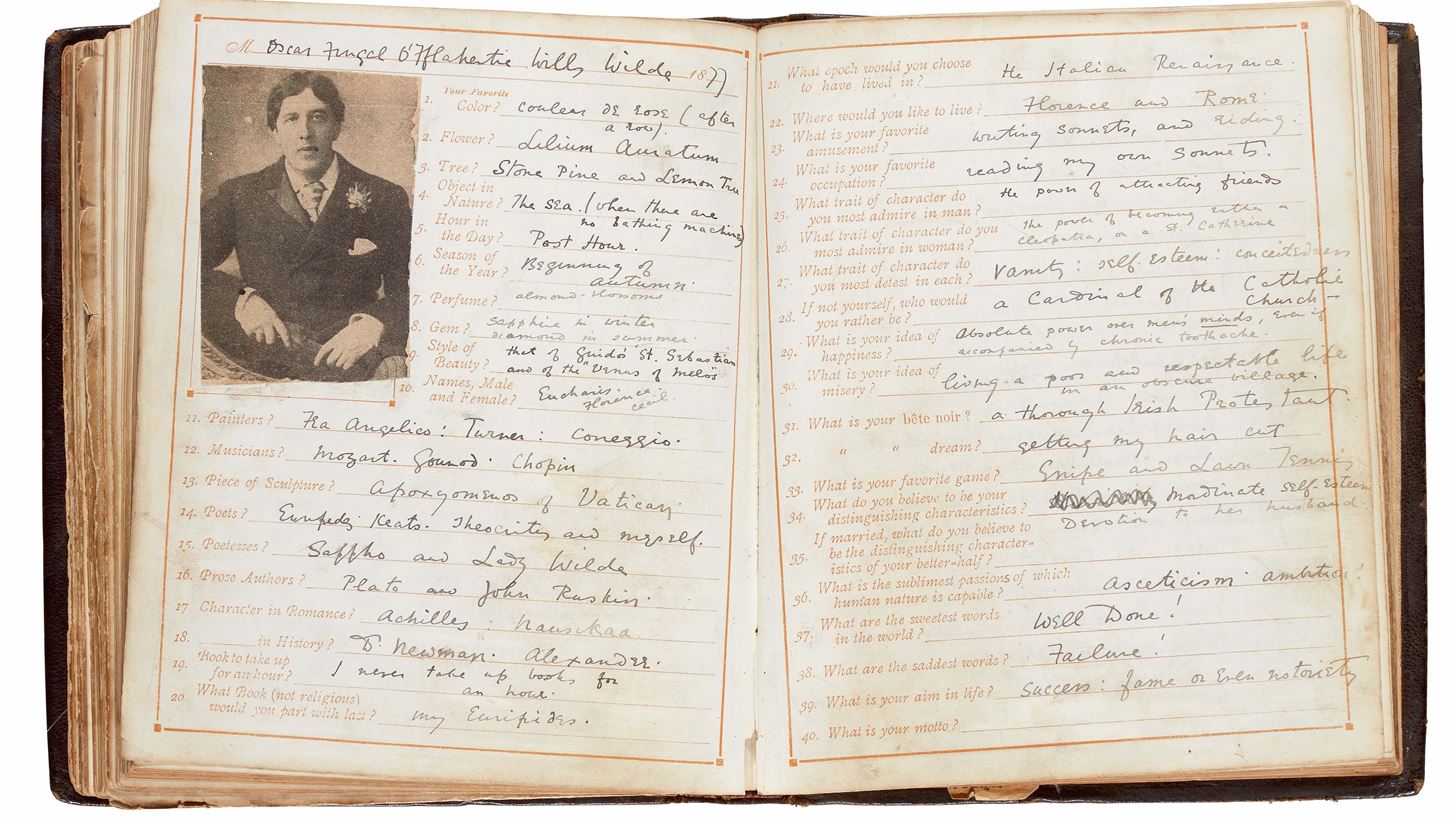 M Oscar Fingal O'Fflahertie Wills Wilde 1877
Your Favorite
1. Color? couleur de rose (after
a row).
2. Flower? Lilium Auratum
3. Tree? Stone Pine and Lemon Tree
4. Object in
Nature? The sea (when there are
no bathing machines)
5. Hour in
the Day? Post Hour.
6. Season of
the Year? Beginning of
autumn.
7. Perfume? almond-blossoms
8. Gem? sapphire in winter
diamond in summer.
9. Style of
Beauty? that of Guido's St. Sebastian
and of the "Venus of Melos"
10. Names, Male
and Female? Eucharis
Florence
Cecil.
11. Painters? Fra Angelico: Turner: Correggio.
12. Musicians? Mozart. Gounod. Chopin
13. Piece of Sculpture? Apoxyomenos of Vatican
14. Poets? Euripides Keats. Theocritus and myself.
15. Poetesses? Sappho and Lady Wilde
16. Prose Authors? Plato and John Ruskin.
17 Character in Romance? Achilles: Nausikaa.
18. in History? Dr. Newman. Alexander.
19. Book to take up
for an hour? I never take up books for
an hour.
20. What Book (not religious)
would you part with last? my Euripides.
21. What epoch would you choose
to have lived in? the Italian Renaissance.
22. Where would you like to live? Florence and Rome.
23. What is your favorite
amusement? writing sonnets, and riding.
24. What is your favorite
occupation? reading my own sonnets.
25. What trait of character do
you most admire in man? the power of attracting friends
26. What trait of character do you
most admire in woman? the power of becoming either a
Cleopatra, or a St. Catherine
27. What trait of character do
you most detest in each? Vanity: self-esteem: conceitedness
28. If not yourself, who would
you rather be? a Cardinal of the Catholic
Church—
29. What is your idea of
happiness? Absolute power over men's minds, even if
accompanied by chronic toothache.
30. What is your idea of
misery? living a poor and respectable life
in an obscure village.
31. What is your bête noir? a thorough Irish Protestant
32. " " dream? getting my hair cut
33. What is your favorite game? Snipe and Lawn Tennis
34. What do you believe to be your
distinguishing characteristics? Inordinate self-esteem
35. If married, what do you believe to
be the distinguishing character=
istics of your better=half? Devotion to her husband.
36. What is the sublimest passions of which
human nature is capable? asceticism. ambition.
37. What are the sweetest words
in the world? Well Done!
38. What are the saddest words? Failure!
39. What is your aim in life? Success: fame or even notoriety
40. What is your motto?